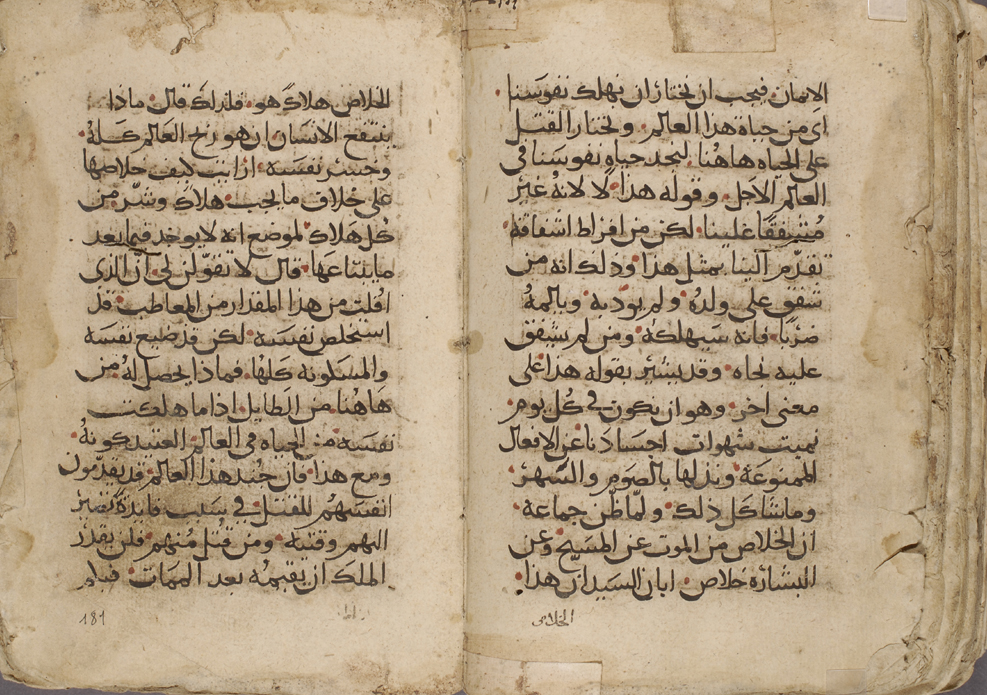 الامان فيجب ان نختار ان نهلك نفوسنا
اى من حياة هذا العالم ونختار القتل
على الحياه هاهنا لنجد حياه نفوسنا في
العالم الاجل وقوله هذا لا لانه غير
مشفقا علينا لكن من افراط اشفاقه
تقدم الينا بمثل هذا وذلك انه من
شفق على ولده ولم يودبه ويالمه
ضربًا فانه سيهلكه ومن لم يشفق
عليه نجاه وقد يشير بقوله هذا على
معنى اخر وهو ان نكون في كل يوم
نميت شهوات اجسادنا عن الافعال
الممنوعة ونذلها بالصوم والسهر
وما شاكل ذلك ولما ظن جماعة
ان الخلاص من الموت عن المسيح وعن
البشارة خلاص ابان السيد ان هذا
الخلاص
الخلاص هلاكً هو فلذلك قال ماذا
ينتفع الانسان ان هو ربح العالم كله
وخسر نفسه ارايت كيف خلاصها
على خلاف ما يجب هلاك وشر من
كل هلاك لموضع انه لا يوجد فيما بعد
ما يبتاعها قال لا تقولن لي ان الذى
افلت من هذا المقدار من المعاطب قد
استخلص نفسه لكن قد ضيع نفسه
والمسكونه كلها فماذا يحصل له من
هاهنا من الطايل اذا ما هلكت
نفسه من الحياه في العالم العتيد كونه
ومع هذا فان جند هذا العالم قد يقدمون
انفسهم للقتل في سبب فايدة تصير
اليهم وقتيه ومن قتل منهم فلن يقدر
الملك ان يقيمه بعد الممات فبلم
181